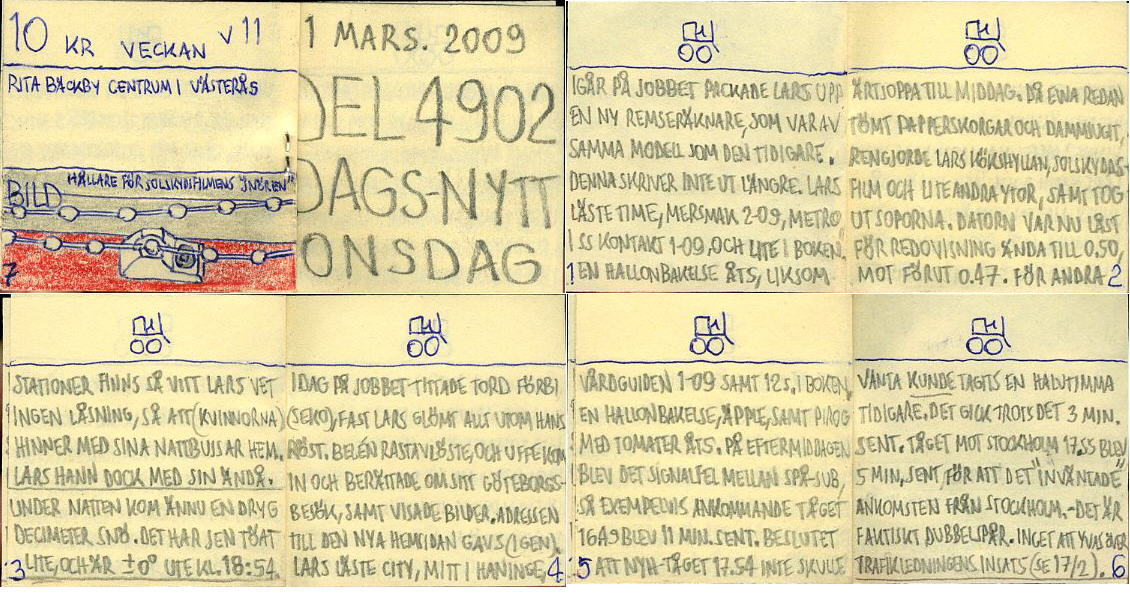 10 KR VECKAN V 11
RITA BÄCKBY CENTRUM I VÄSTERÅS
HÅLLARE FÖR SOLSKYDSFILMENS "SNÖREN"
BILD
7
1 MARS. 2009
DEL 4902
DAGS-NYTT
ONSDAG
IGÅR PÅ JOBBET PACKADE LARS UPP
EN NY REMSERÄKNARE, SOM VAR AV
SAMMA MODELL SOM DEN TIDIGARE.
DENNA SKRIVER INTE UT LÄNGRE. LARS
LÄSTE TIME, MERSMAK 2-09, METRO
I SS KONTAKT 1-09, OCH LITE I BOKEN.
EN HALLONBAKELSE ÅTS, LIKSOM
1
ÄRTSOPPA TILL MIDDAG. DÅ EWA REDAN
TÖMT PAPPERSKORGAR OCH DAMMSUGIT,
RENGJORDE LARS KÖKSHYLLAN, SOLSKYDDS-
FILM OCH LITE ANDRA YTOR, SAMT TOG
UT SOPORNA. DATORN VAR NU LÅST
FÖR REDOVISNING ÄNDA TILL 0.50,
MOT FÖRUT 0.47. FÖR ANDRA
2
STATIONER FINNS SÅ VITT LARS VET
INGEN LÅSNING, SÅ ATT (KVINNORNA)
HINNER MED SINA NATTBUSSAR HEM.
LARS HANN DOCK MED SIN ÄNDÅ.
UNDER NATTEN KOM ÄNNU EN DRYG
DECIMETER SNÖ. DET HAR SEN TÖAT
LITE, OCH ÄR ±0° UTE KL. 18:54.
3
IDAG PÅ JOBBET TITTADE TORD FÖRBI
(SEKO), FAST LARS GLÖMT ALLT UTOM HANS
RÖST. BELÉN RASTAVLÖSTE, OCH UFFE KOM
IN OCH BERÄTTADE OM SITT GÖTEBORGS-
BESÖK, SAMT VISADE BILDER. ADRESSEN
TILL DEN NYA HEMSIDAN GAVS (IGEN).
LARS LÄSTE CITY, MITT I HANINGE,
4
VÅRDGUIDEN 1-09 SAMT 12 S. I BOKEN.
EN HALLONBAKELSE, ÄPPLE, SAMT PIROG
MED TOMATER ÅTS. PÅ EFTERMIDDAGEN
BLEV DET SIGNALFEL MELLAN SPÅ-SUB,
SÅ EXEMPELVIS ANKOMMANDE TÅGET
1649 BLEV 11 MIN. SENT. BESLUTET
ATT NYH-TÅGET 17.54 INTE SKULLE
5
VÄNTA KUNDE TAGITS EN HALVTIMMA
TIDIGARE. DET GICK TROTS DET 3 MIN.
SENT. TÅGET MOT STOCKHOLM 17.55 BLEV
5 MIN, SENT, FÖR ATT DET "INVÄNTADE"
ANKOMSTEN FRÅN STOCKHOLM. - DET ÄR
FAKTISKT DUBBELSPÅR. INGET ATT YVAS ÖVER
TRAFIKLEDNINGENS INSATS (SE 17/2).
6